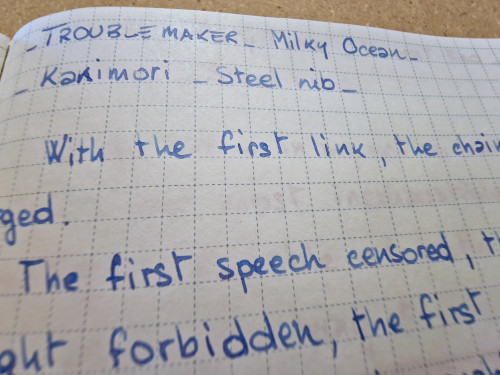 - TROUBLE MAKER - Milky Ocean -
- Kakimori - Steel nib -
With the first link, the chain
ged.
The first speech censored, t
ght forbidden, the first